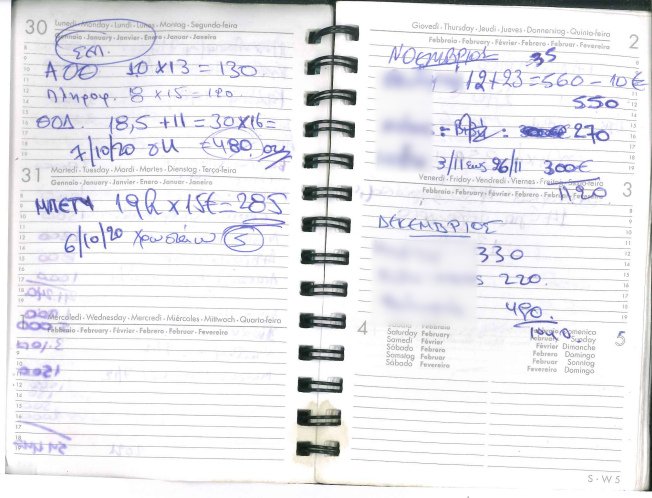 30 Lunedì - Monday - Lundi - Lunes - Montag - Segundo-feira
Gennaio - January - Janvier - Enero - Januar - Janeiro
ΣΕΠ.
ΑΟΘ 10 x 13 = 130
Πληροφ. 8 x 15 = 120.
ΘΟΔ. 18,5 + 11 = 30 x 16 =
7/10/20 οκ €480. οκ
31 Martedì - Tuesday - Mardi - Martes - Dienstag - Terça-feira
Gennaio - January - Janvier - Enero - Januar - Janeiro
ΜΠΕΤΥ 19h x 15€ = 285
6/10/20 Χρωστάω 5
Mercoledì - Wednesday - Mercredi - Miércoles - Mittwoch - Quarta-feira
Febbraio - February - Février - Febrero - Februar - Fevereiro
Giovedì - Thursday - Jeudi - Jueves - Donnerstag - Quinta-feira 2
Febbraio - February - Février - Febrero - Februar - Fevereiro
ΝΟΕΜΒΡΙΟΣ 35
12+23 = 560 - 10€
550
270
3/11 εως 26/11 300€
Venerdì - Friday - Vendredi - Viernes - Freitag - Sexta-feira 3
Febbraio - February - Février - Febrero - Februar - Fevereiro
1120
ΔΕΚΕΜΒΡΙΟΣ
330
s 220.
490.
1040.
4 Sabato Febbraio
Saturday February
Samedi Février
Sábado Febrero
Samstag Februar
Sábado Fevereiro
Febbraio Domenica 5
February Sunday
Février Dimanche
Febrero Domingo
Februar Sonntag
Fevereiro Domingo
S - W 5